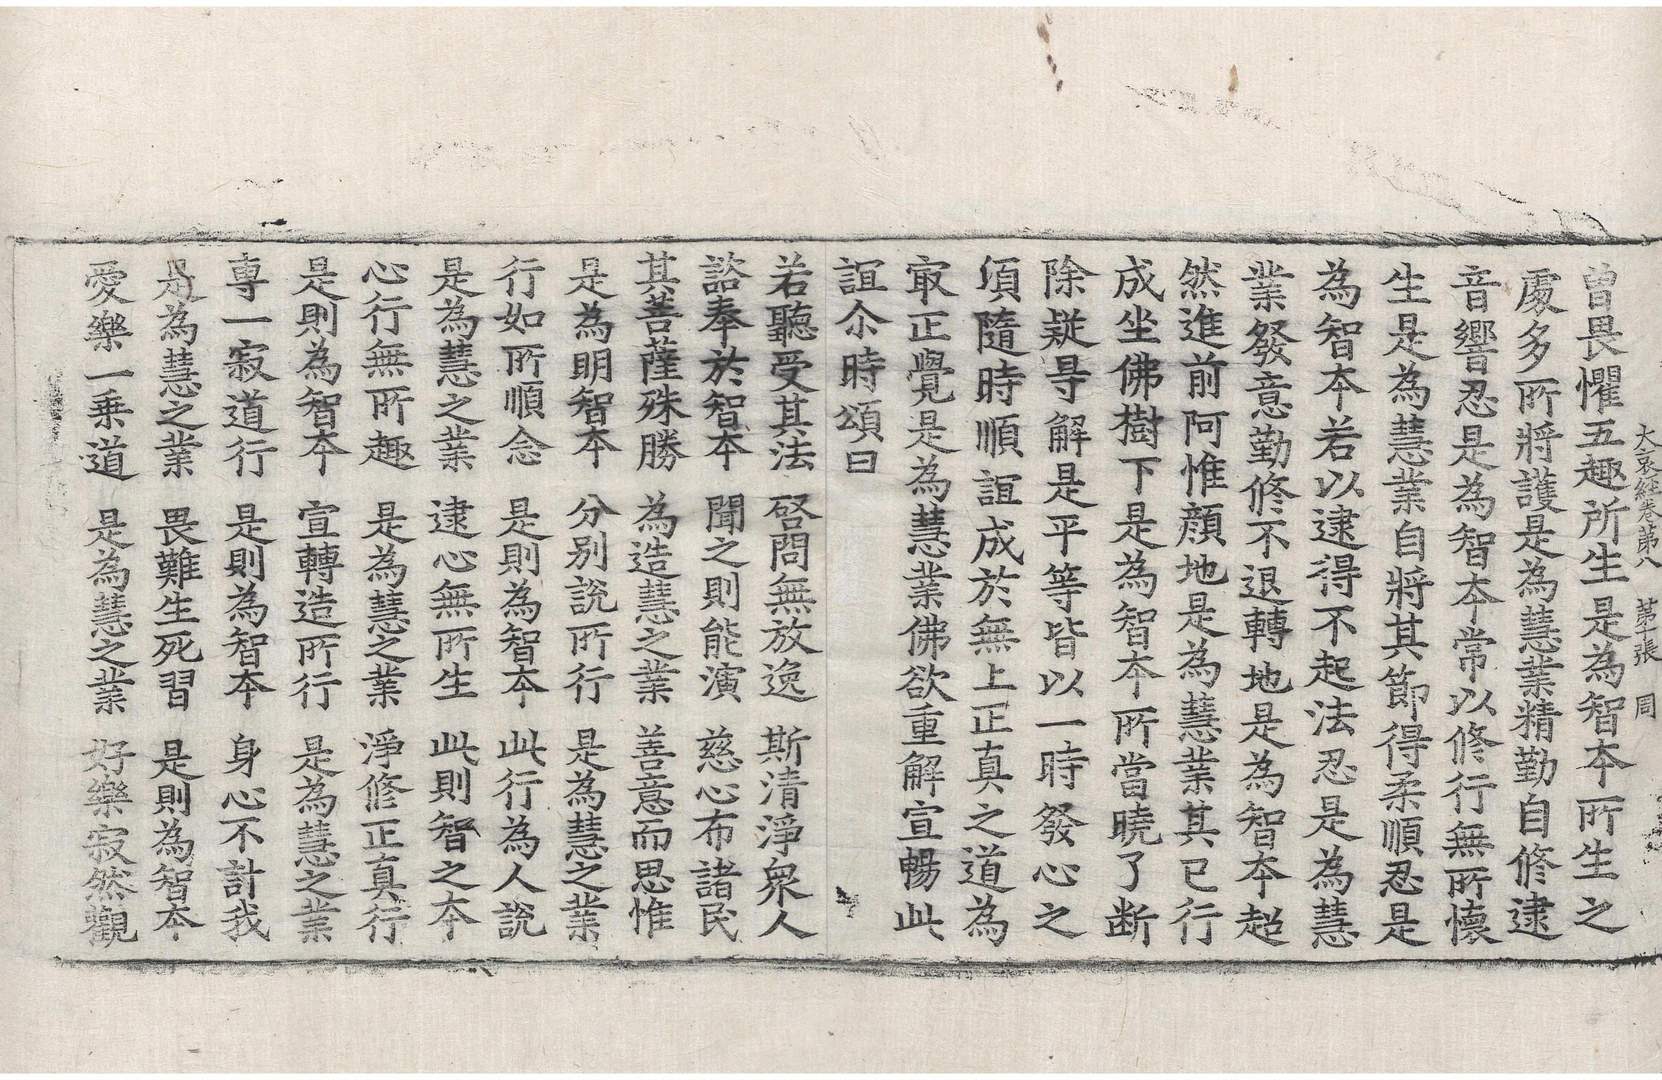 大哀經卷第八 第十張 周
曽畏懼五趣所生是為智本所生之
處多所將護是為慧業精勤自修逮
音響忍是為智本常以修行無所懷
生是為慧業自將其節得柔順忍是
為智本若以逮得不起法忍是為慧
業發意勤修不退轉地是為智本超
然進前阿惟顔地是為慧業其已行
成坐佛樹下是為智本所當曉了断
除疑㝵解是平等皆以一時發心之
頃隨時順誼成於無上正真之道為
㝡正覺是為慧業佛欲重解宣暢此
誼尒時頌曰
若聽受其法 啓問無放逸 斯清淨衆人
諮奉於智本 聞之則能演 慈心布諸民
其菩薩殊勝 為造慧之業 善意而思惟
是為明智本 分别說所行 是為慧之業
行如所順念 是則為智本 此行為人說
是為慧之業 逮心無所生 此則智之本
心行無所趣 是為慧之業 淨修正真行
是則為智本 宣轉造所行 是為慧之業
専一寂道行 是則為智本 身心不計我
是為慧之業 畏難生死習 是則為智本
愛樂一乗道 是為慧之業 好樂寂然觀